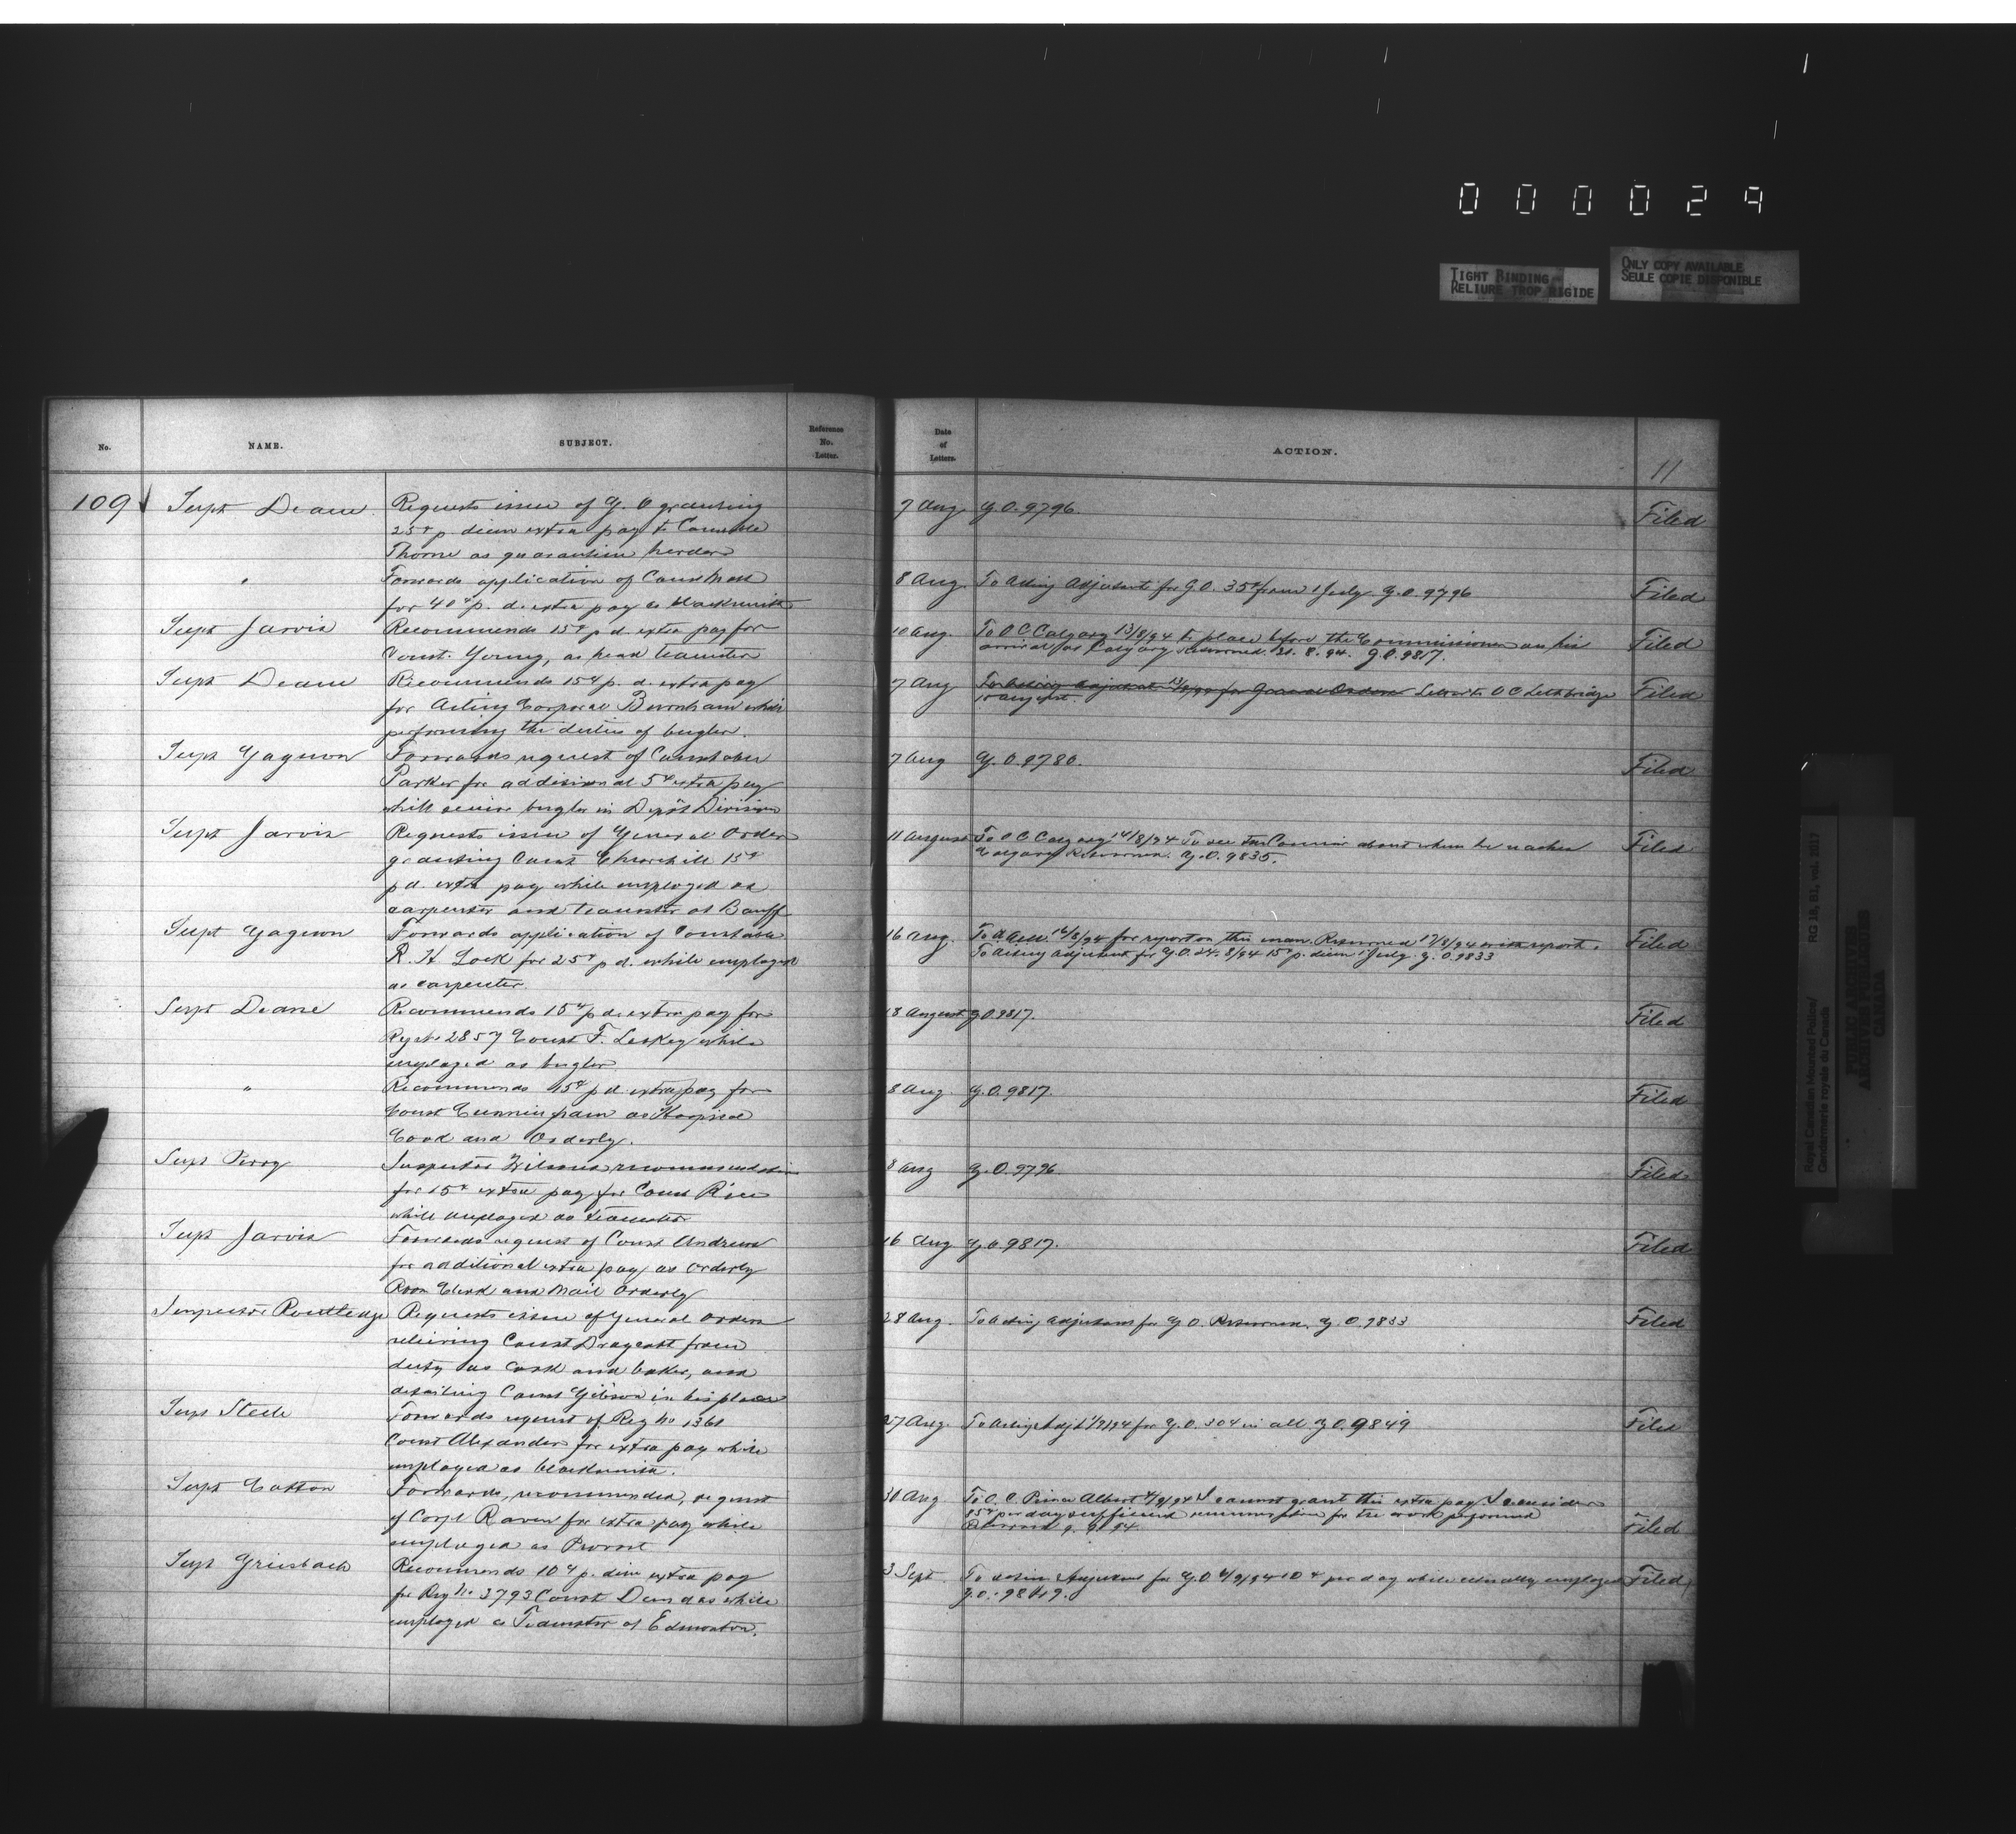 000029
TIGHT BINDING
RELIURE TROP RIGIDE
ONLY COPY AVAILABLE
SEULE COPIE DISPONIBLE
No.
NAME.
SUBJECT.
Reference
No.
Letter.
Date
of
Letters.
ACTION.
11
109 Supt Deane Requests issue of G. O granting 7 Aug G. O. 9796. Filed
25¢ p. diem extra pay to Constable
Thorne as quarantine herder
" Forwards application of Const 8 Aug To Acting Adjutant for G.O. 35¢ from 1 July G.O. 9796 Filed
for 40¢ p. d. extra pay as blacksmith
Supt Jarvis Recommends 15¢ p d. extra pay for 10 Aug. To O C Calgary 13/8/94 to place before the Commissioner on his Filed
Const. Young, as head teamster arrival at Calgary Returned 21. 8. 94. G.O. 9817.
Supt Deane Recommends 15¢ p. d. extra pay 7 Aug To Acting Adjutant 13/8/94 for General Orders Letter to O C Lethbridge Filed
for Acting Corporal Burnham while
performing the duties of bugler.
Supt Gagnon Forwards request of Constable 7 Aug G. O. 9780. Filed
Parker for additional 5¢ extra pay
while senior bugler in Depôt Division
Supt Jarvis Requests issue of General Order 11 August To O C Calgary 14/8/94 To see the Commr about when he reaches Filed
granting Const Churchill 15¢ Calgary Returned. G.O. 9835.
p d. extra pay while employed as
carpenter and teamster at Banff
Supt Gagnon Forwards application of Constable 16 Aug. for report on this man. Returned 17/8/94 with report. Filed
R. H. Lock for 25¢ p d. while employed To Acting Adjutant for G.O. 24. 8/94 15¢ p. diem 1 July. G. O. 9833
as carpenter.
Supt Deane Recommends 15¢ p d. extra pay for 18 August G O 9817. Filed
Reg No 2857 Const F. Leskey while
employed as bugler
" Recommends 15¢ p d. extra pay for 8 Aug G. O. 9817. Filed
Const Cunningham as Hospital
Cook and Orderly.
Supt Perry Inspector Wilsons recommendation 8 Aug G. O. 9796 Filed
for 15¢ extra pay for Const Rice
while employed as teamster
Supt Jarvis Forwards request of Const Andrews 16 Aug G. O. 9817. Filed
for additional extra pay as Orderly
Room Clerk and Mail Orderly
Inspector Routledge Requests issue of General Orders 28 Aug. To Acting Adjutant for G O. Returned. G. O. 9833 Filed
relieving Const Draycott from
duty as cook and baker, and
detailing Const Gibson in his place
Supt Steele Forwards request of Reg No 1361 27 Aug. To Acting Adjt 1/9/94 for G. O. 30¢ in all G O. 9849 Filed
Const Alexander for extra pay while
employed as blacksmith.
Supt Cotton Forwards, recommended, request 30 Aug To O. C. Prince Albert 4/9/94 I cannot grant this extra pay. I consider Filed
of Corpl Raven for extra pay while 85¢ per day sufficient remuneration for the work performed
employed as Provost Returned 9. 9. 94.
Supt Griesbach Recommends 10¢ p. diem extra pay 3 Sept To Acting Adjutant for G O 4/9/94 10 ¢ per day while actually employed Filed
for Reg No 3793 Const Dundas while G. O. 9849.
employed as Teamster at Edmonton.
Royal Canadian Mounted Police/
Gendarmerie royale du Canada
RG 18, B1, vol. 2017
PUBLIC ARCHIVES
ARCHIVES PUBLIQUES
CANADA